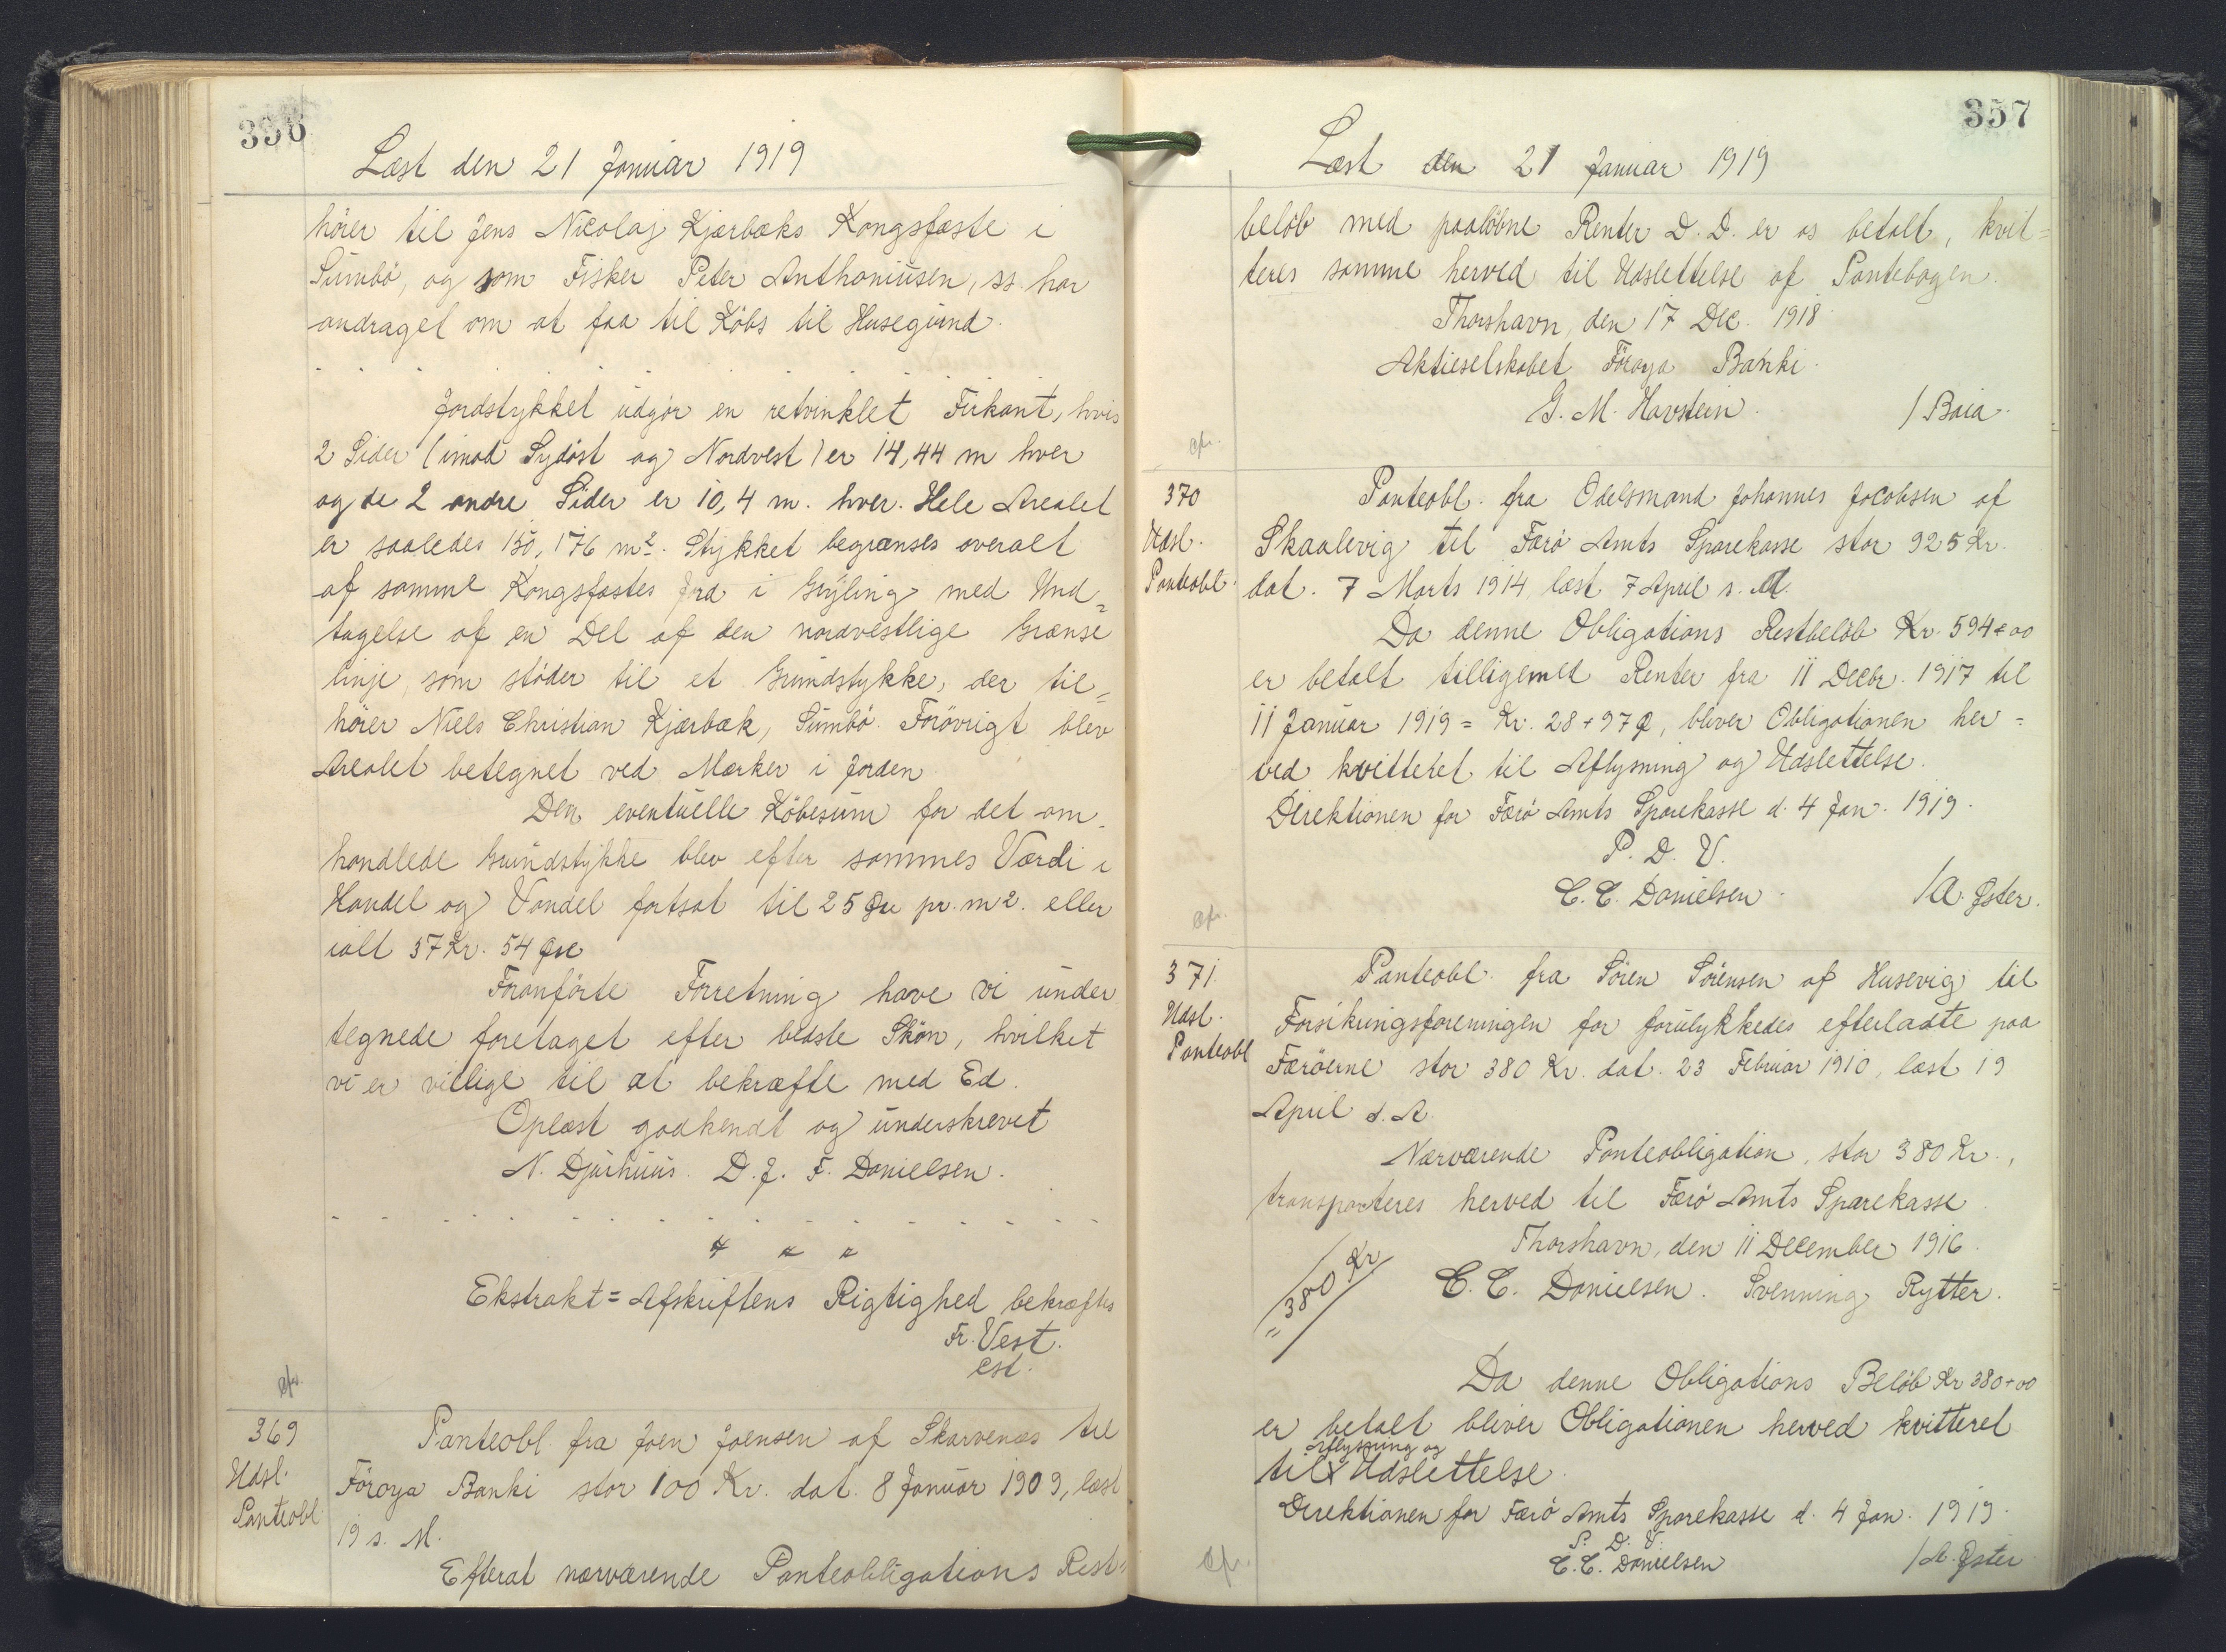 356
Læst den 21 Januar 1919
hörer til Jens Nicolaj Kjærbæks Kongsfæste i
Sumbö, og som Fisker Peter Anthoniusen, ss. har
andraget om at faa til Købs til Husegrund.
. . . . . . . . . . . . . . .
Jordstykket udgör en retvinklet Firkant, hvis
2 Sider (imod Sydöst og Nordvest) er 14,44 m hver
og de 2 andre Sider er 10,4 m. hver. Hele Arealet
er saaledes 150,176 m². Stykket begrænses overalt
af samme Kongsfæstes Jord i Gryling med Und=
tagelse af en Del af den nordvestlige Grænse
linje, som støder til et Grundstykke, der til=
hörer Niels Christian Kjærbæk, Sumbö. Forövrigt blev
Arealet betegnet ved Mærker i Jorden
Den eventuelle Köbesum for det om=
handlede Grundstykke blev efter sammes Værdi i
Handel og Vandel fortsat til 25 Øre pr. m2. eller
ialt 37 Kr. 54 Øre
Foranförte Forretning have vi under
tegnede foretaget efter bedste Skön, hvilket
vi er villige til at bekræfte med Ed.
Oplæst godkendt og underskrevet
N. Djurhuus. D. J. F. Danielsen.
- - - - - - - - - - - - - - -
" " "
Ekstrakt=Afskriftens Rigtighed bekræftes
Fr. Vest.
cst.
369
Udsl.
Panteobl
Panteobl fra Joen Joensen af Skarvenæs til
Föroya Banki stor 100 Kr. dat. 8 Januar 1909, læst
19 s. M.
Efterat nærværende Panteobligations Rest=
357
Læst den 21 Januar 1919
beløb med paaløbne Renter D. D. er os betalt, kvit=
teres samme herved til Udslettelse af Pantebogen.
Thorshavn, den 17 Dec. 1918
Aktieselskabet Föroya Banki.
G. M. Havstein. / Baia.
370
Udsl.
Panteobl.
Panteobl. fra Odelsmand Johannes Jacobsen af
Skaalevig til Færö Amts Sparekasse stor 925 Kr.
dat. 7 Marts 1914, læst 7 April s. A.
Da denne Obligations Restbelöb Kr. 594+00
er betalt tilligemed Renter fra 11 Decbr. 1917 til
11 Januar 1919 = Kr. 28+97 Ø, bliver Obligationen her=
ved kvitteret til Aflysning og Udslettelse.
Direktionen for Færö Amts Sparekasse d. 4 Jan. 1919.
P. D. V.
C. C. Danielsen. / A. Øster.
371
Udsl.
Panteobl
Panteobl. fra Sören Sörensen af Husevig til
Forsikringsforeningen for forulykkedes efterladte paa
Færöerne stor 380 Kr. dat. 23 Februar 1910, læst 19
April s. A.
Nærværende Panteobligation, stor 380 Kr.,
transporteres herved til Færö Amts Sparekasse
Thorshavn, den 11 December 1916.
C. C. Danielsen. Svenning Rytter.
"380 Kr
Da denne Obligations Belöb Kr 380+00
er betalt bliver Obligationen herved kvitteret
Aflysning og
til x Udslettelse.
Direktionen for Færö Amts Sparekasse d. 4 Jan. 1919.
P. D. V.
C. C. Danielsen / A. Øster